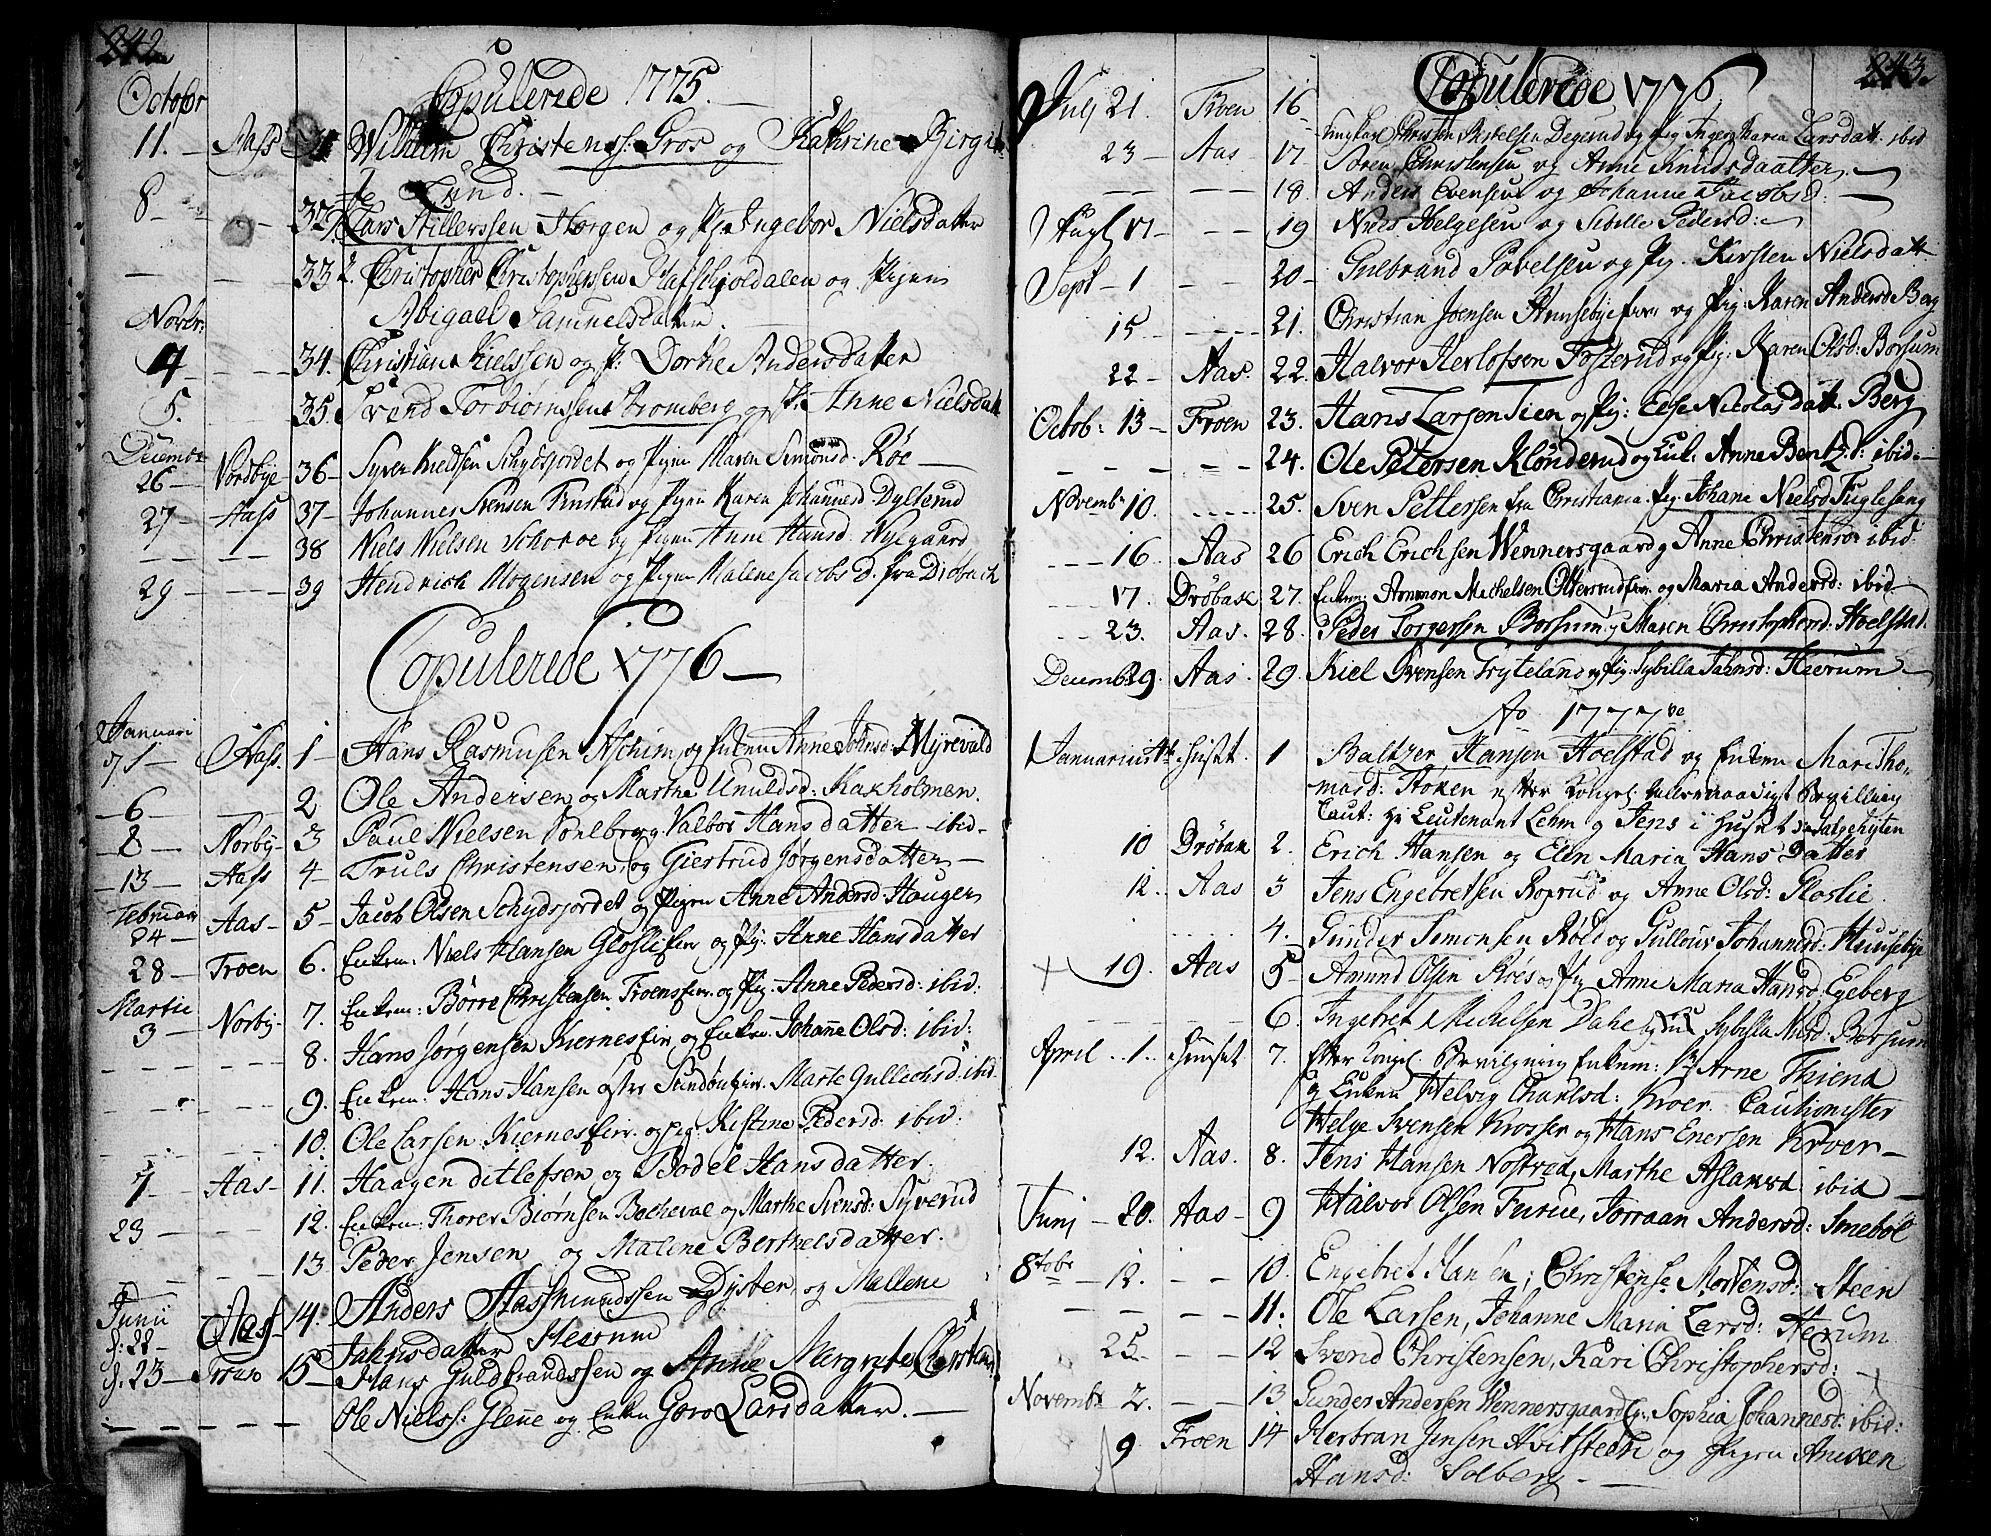 242
Copulerede 1775.
Octobr
11. Aass Wilhelm Christenss: Gros og Kathrine Birgit-
te Lund.
8 32 Lars Hillerssen Horgen og P. Ingebor Nielsdatter
33 Christopher Christophersen og Pigen
Abigael Samuelsdatter.
Novbr:
4 34. Christian Nielssen og P: Dorthe Andersdatter
5. 35. Svend Torbiørnssen Bromberg og P: Anne Nielsdatt
Decembr
26 Nordbye 36 Syver Kieldsen Schydsjordet og Pigen Maren Simonsd. Røe
27 Aass 37 Johannes Svensen Finstad og Pigen Karen Johannesd Dyllerud
38 Niels Nielsen og Pigen Anne Hansd. Nyegaard
29 39 Hendrich Mogensen og Pigen Malene Jacobsd. fra Drøbach
Copulerede 1776
Januari
Aass. 1 Hans Rasmusen Aschim og Enken Anne Johnsd: Myrevald
6 2 Ole Andersen og Marthe Unuldsd: Kaxholmen.
8 Norby 3 Paul Nielsen og Valbor Hansdatter ibid
13 Aass 4 Truls Christensen og Giertrud Jørgensdatter
Februari
24 Aas 5 Jacob Olsen Schydsjordet og Pigen Anne Andersd. Haugen
28 Froen 6. Enkem: Niels Hansen Gloslie og Pig: Anne Hansdatter
Martie 7. Enkem: Børre Christensen Froen og Pig. Anne Pedersd: ibid:
3 Norby 8. Hans Jørgensen Kiernes og Enken Johanne Olsd: ibid:
9. Enkem: Hans Hansen østre Marte Gullichsd: ibid.
10. Ole Larsen Kiernes og Pig Kistine Pedersd: ibid:
7 Aas 11. Haagen Ditlefsen og Bodel Hansdatter.
23 12. Enkem: Thorer Biørnsen Bocheval og Marthe Svensd: Syverud
13 Peder Jensen og Malene Berthelsdatter.
Junii
d: 22 Aass 14. Anders Aassmundssen Dyster og Mallene
Jahnsdatter Heerum
d: 23 Froen 15 Hans Guldbrandssen og Anne Margrete
Ole Nielss: Glene og Enke Goro Larsdatter.
243.
Copulerede 1776
July 21. Froen 16 Christen Axelsen Degerud og Pig Inger Maria Larsdatt. ibid
23 Aas 17 Søren Christensen og Anne Knudsdaatter
18. Anders Evensen og Johanne Jacobsd:
Aug 17 19 Niels Helgesen og Sibille Pedersd:
Sept 1 20 Gulbrand Povelsen og Pig. Kirsten Nielsdatt
15 21. Christian Joensen og Pig: Karen Andersd Berg
22 Aas. 22. Halvor Herlofsen Fosterud og Pig: Karen Olsd: Borsum
Octob: 13 Froen 23. Hans Larsen Sien og Pig: Else Nicolasdatt. Berg
24. Ole Petersen Klonderud og Enk. Anne Bentzd: ibid:
Novembr 10. 25. Sven Pettersen fra Christiania. Pig Johane Nielsd Fuglesang
16 Aas 26 Erich Erichsen Wennersgaard og Anne Christensd ibid:
17. Drøbak 27. Enkem: Ammon Michelsen og Maria Andersd: ibid
23. Aas. 28. Peder Torgersen Borsum og Maren Christophersd: Hoelstad
Decembr 29. Aas. 29. Kiel Svensen Fryteland og Pig: Sybilla Jahnsd: Heerum
Ao 1777
Januarius Huset. 1 Baltzer Hansen Hoelstad og Enken Mari Tho-
masd: efter Kongel: allernaadigst Bevillning
Caut: Hr Lieutenant Lehm og
10 Drøbak 2. Erich Hansen og Elen Maria Hans Datter
12. Aas 3 Jens Engebretsen Roprud og Anne Olsd: Gloslie.
4. Gunder Simonsen Rold og Gullour Johannesd: Huusebye
19. Aas 5 Amund Olsen Roes og Pig Anne Maria Hansd: Egeberg
6. Ingebret Michelsen Dahl og Sybilla Nilsd: Borsum
April 1. Huset 7. Efter Kongel Bevilgning Enkem: Arne Thiend
og Enken Helvig Charlsd: Kroer. Cautionister
Helge Svensen Krosser og Hans Enersen Kroer
12. Aas. 8. Jens Hansen Nostved, Marthe Aslacsd: ibid
Junj 20. Aas 9 Halvor Olsen Furue, Jorraan Andersd: Smebøl
8tobr 12. 10. Engebret Hansen, Christense Mortensd: Steen
11. Ole Larsen, Johanne Maria Larsd: Herum
25 12 Svend Christensen, Kari Christophersd:
Novembr 2. 13 Gunder Andersen Wennersgaard, Sophia Johannesd: ibid:
9. Froen 14 Herbran Jensen Hvitsteen og Pigen Anexen
Hansd: Solberg